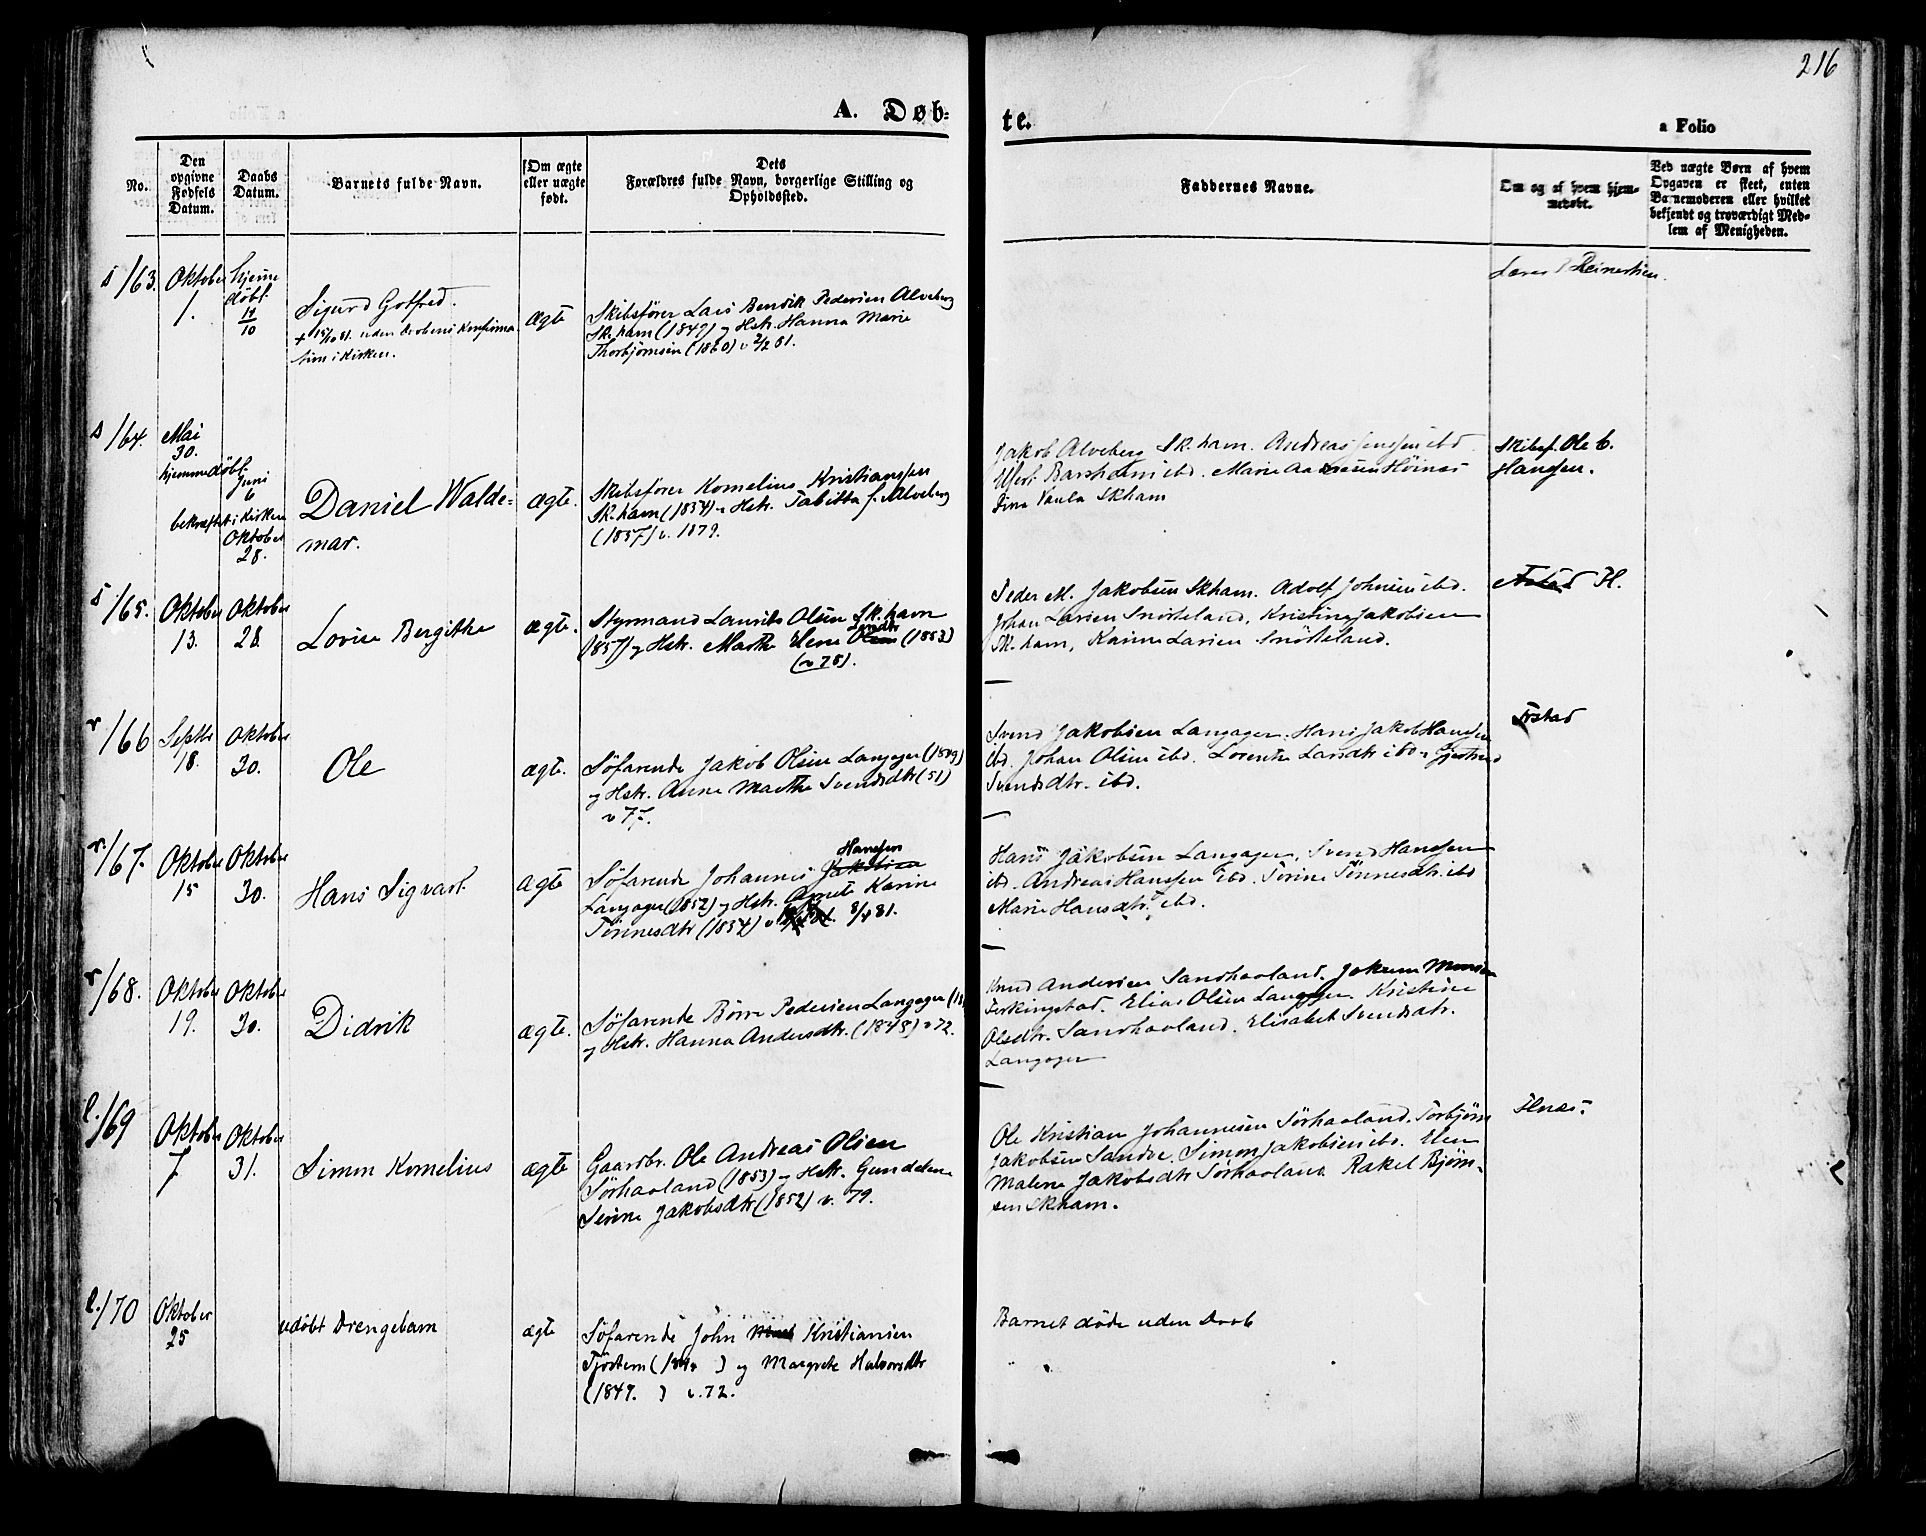 216
A. Døb-
te.
a Folio
No.
Den
opgivne
Fødsels
Datum.
Daabs
Datum.
Barnets fulde Navn.
Om ægte
eller uægte
født.
Dets
Forældres fulde Navn, borgerlige Stilling og
Opholdssted.
Faddernes Navne.
Om og af hvem hjem-
medøbt.
Ved uægte Børn af hvem
Opgaven er skeet, enten
Barnemoderen eller hvilket
bekjendt og troværdigt Med-
lem af Menigheden.
s/63.
Oktober
1.
hjemme
døbt
11/10
Sigurd Gotfred.
+ 15/10 81. uden Daabens Konfirma
tion i Kirken.
ægte
Skibsfører Lars Bendik Pedersen Alveberg
Sk.ham (1849) og Hstr. Hanna Marie
Thorbjørnsen (1860) v 2/2 81.
Lærer Reinertsen.
s/64.
Mai
30.
hjemmedøbt
Juni
6
bekræftet i Kirken
Oktober
28.
Daniel Walde-
mar.
ægte.
Skibsfører Kornelius Kristiansen
Sk.ham (1854) og Hstr. Tabitta f. Alveberg
(1857) v. 1879.
Jakob Alveberg Sk.ham. Andreas Jensen ibd
Barsholm ibd. Marie Aanensen Høines
Dina Paula Skham
Skibsf. Ole C.
Hansen.
s/65.
Oktober
13.
Oktober
28.
Lovise Bergithe
ægte.
Styrmand Laurits Olsen Sk.ham
(1857) og Hstr. Marthe Elene Olsen (1853)
(v 78).
Peder M. Jakobsen Skham. Adolf Johnsen ibd.
Johan Larsen Snørteland, Kristine Jakobsen
Sk.ham, Karine Larsen Snørteland.
Astad H.
r/66
Septb
18.
Oktober
30.
Ole
ægte.
Søfarende Jakob Olsen Langager (1849)
og Hstr. Anne Marthe Svendsdtr (51)
v 77.
Svend Jakobsen Langager. Hans Jakob Hansen
ibd. Johan Olsen ibd. Lorentse Larsdtr ibd. Gjertrud
Svendsdtr. ibd.
Astad
r/67.
Oktober
15
Oktober
30.
Hans Sigvart.
ægte
Hansen
Søfarende Johannes Jakobsen
Langager (1852) og Hstr. Anne Karine
Tønnesdtr (1854) v 8/4 81.
Hans Jakobsen Langager, Svend Hansen
ibd. Andreas Hansen ibd. Serine Tønnesdtr. ibd
Marie Hansdtr. ibd.
r/68.
Oktober
19.
Oktober
30.
Didrik
ægte.
Søfarende Børre Pedersen Langager (18
og Hstr. Hanna Andersdtr. (1848) v 72.
Knud Andersen Sandhaaland. Jokum Monsen
Ferkingstad. Elias Olsen Langager. Kristine
Olsdtr. Sandhaaland. Elisabet Svendsdtr.
Langager
l./69
Oktober
7
Oktober
31.
Simon Kornelius
ægte
Gaardbr. Ole Andreas Olsen
Sørhaaland (1853) og Hstr. Gundelena
Serine Jakobsdtr (1852) v. 79.
Ole Kristian Johannesen Sørhaaland. Torbjørn
Jakobsen Sandve. Simon Jakobsen ibd. Elen
Malene Jakobsdtr Sørhaaland. Rakel Bjørn-
sen Skham.
l./70
Oktober
25
udøbt Drengebarn
ægte
Søfarende John Kristiansen
Tjøstem (184 ) og Margrete Halvorsdtr
(1847. ) v. 72.
Barnet døde uden Daab